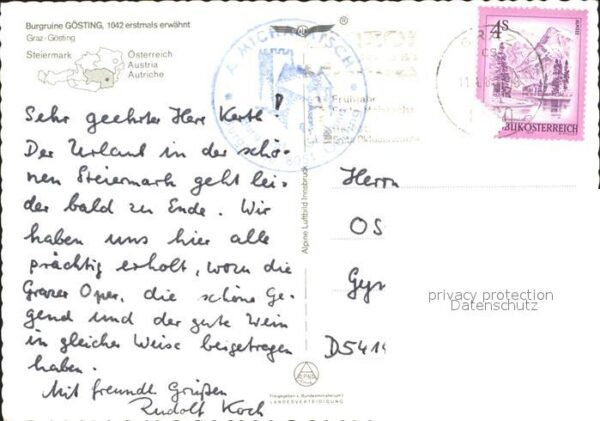 Burgruine GÖSTING, 1042 erstmals erwähnt
Graz-Gösting
Steiermark
Österreich
Austria
Autriche
Sehr geehrter Herr Kerth!
Der Urlaub in der schö-
nen Steiermark geht lei-
der bald zu Ende. Wir
haben uns hier alle
prächtig erholt, wozu die
Grazer Oper, die schöne Ge-
gend und der gute Wein
in gleicher Weise beigetragen
haben.
Mit freundl. Grüßen
Rudolf Koch
Alpine Luftbild Innsbruck
MICH
8051
Frühjahr
4S
REPUBLIK ÖSTERREICH
Herrn
OS
Gyp
D5414
privacy protection
Datenschutz
Freigegeben v. Bundesministerium f.
LANDESVERTEIDIGUNG